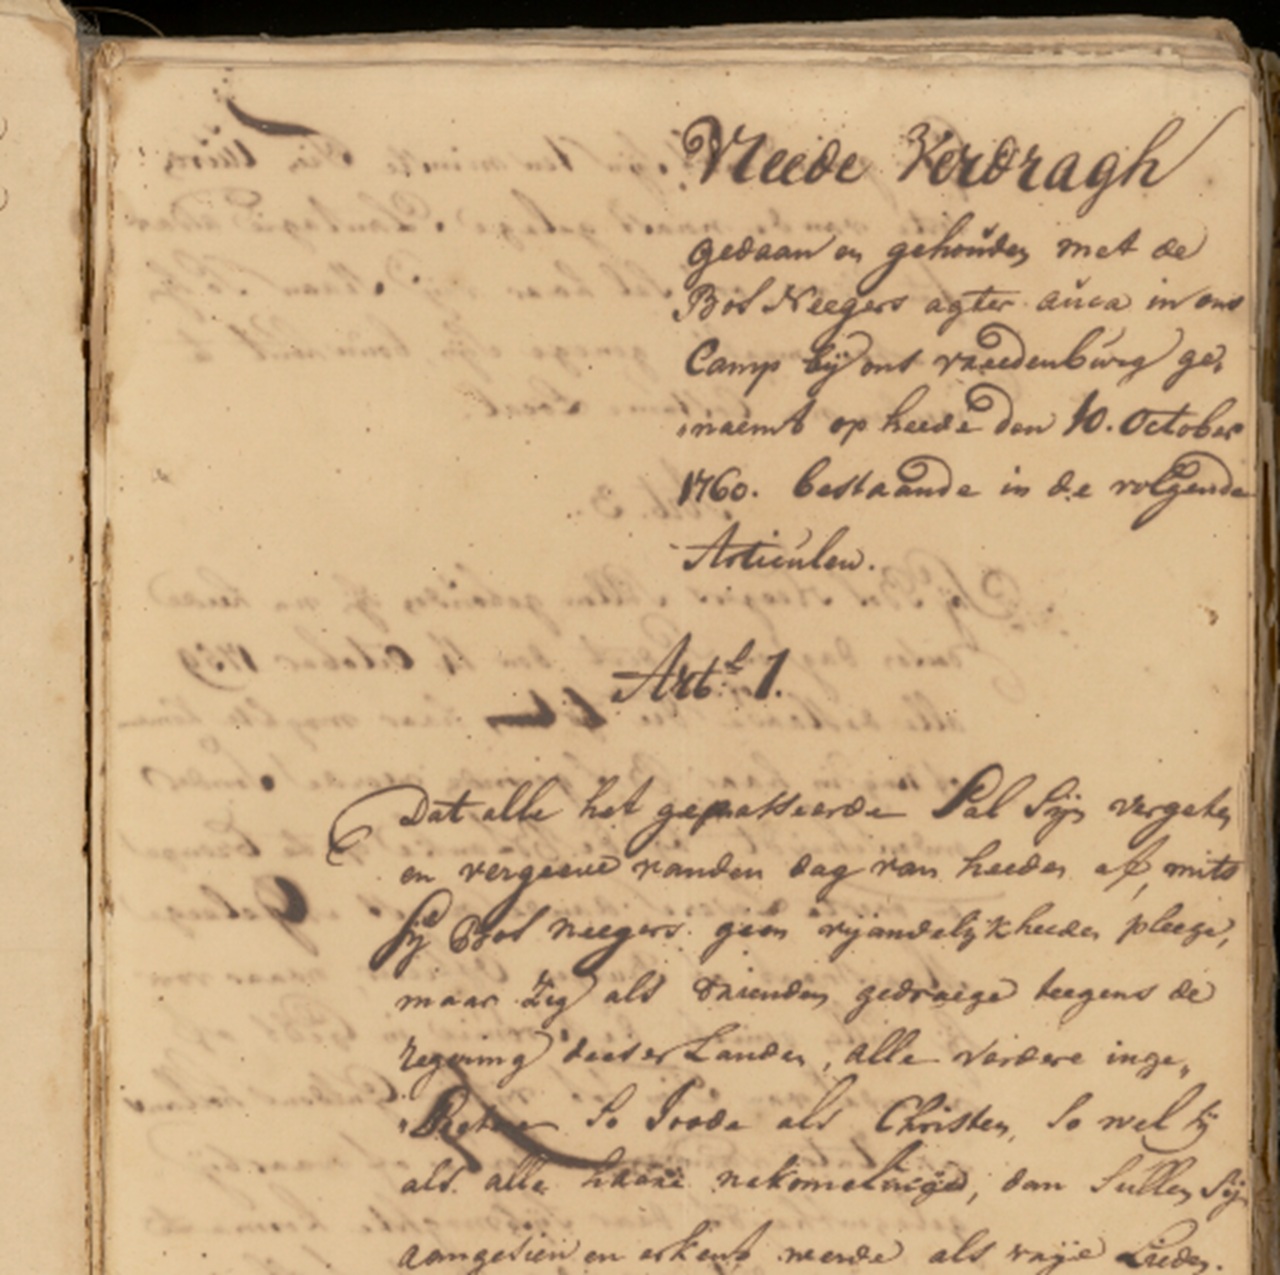 Vreede Verdragh
gedaan en gehouden met de
Bos Neegers agter auca in ons
Camp bÿ ons vreedenburg ge„
„naemt op heede den 10. October
1760. bestaande in de volgende
Articulen.
Artl. 1.
Dat alle het gepasseerde Sal Sijn vergeten
en vergeeve vanden dag van heeden af, mits
Sÿ Bos neegers geen vyandelykheeden pleege,
maar Zig als vrienden gedraege teegens de
regering deeser Landen, alle verdere inge„
„Seetene So Joode als Christen, So wel sÿ
als alle haare nakomelinge, dan Sullen Sÿ
aangesien en erkent werde als vrije Lieden.